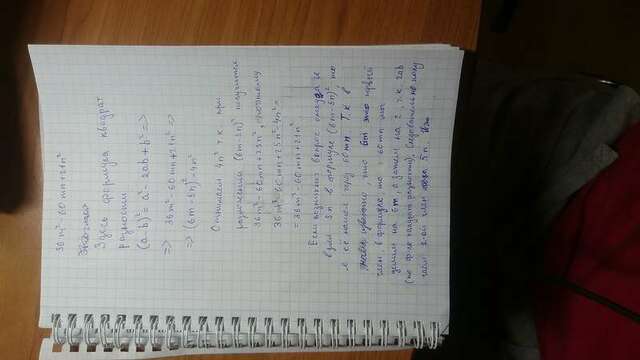 36m² - 60mn + 21n²
Здесь формула квадрат
разности
(a-b)² = a² - 2ab + b² =>
=> 36m² - 60mn + 21n² =>
=> (6m - 5n)² - 4n²
Отнимаем 4n² т.к. при
разложении (6m-5n)² получится
36m² - 60mn + 25n², поэтому
36m² - 60mn + 25n² - 4n² =
= 36m² - 60mn + 21n².
Если возникнет вопрос откуда я
взял 5n в формуле (6m-5n)², то
я её нашел через 60mn. Т.к в
известно, что 6m это первый
член в формуле, то 60mn мы
делим на 6m, а затем на 2, т.к. 2ab
(по ф-ле квадрат разности). Следовательно полу
чаем 2-ой член 5n.